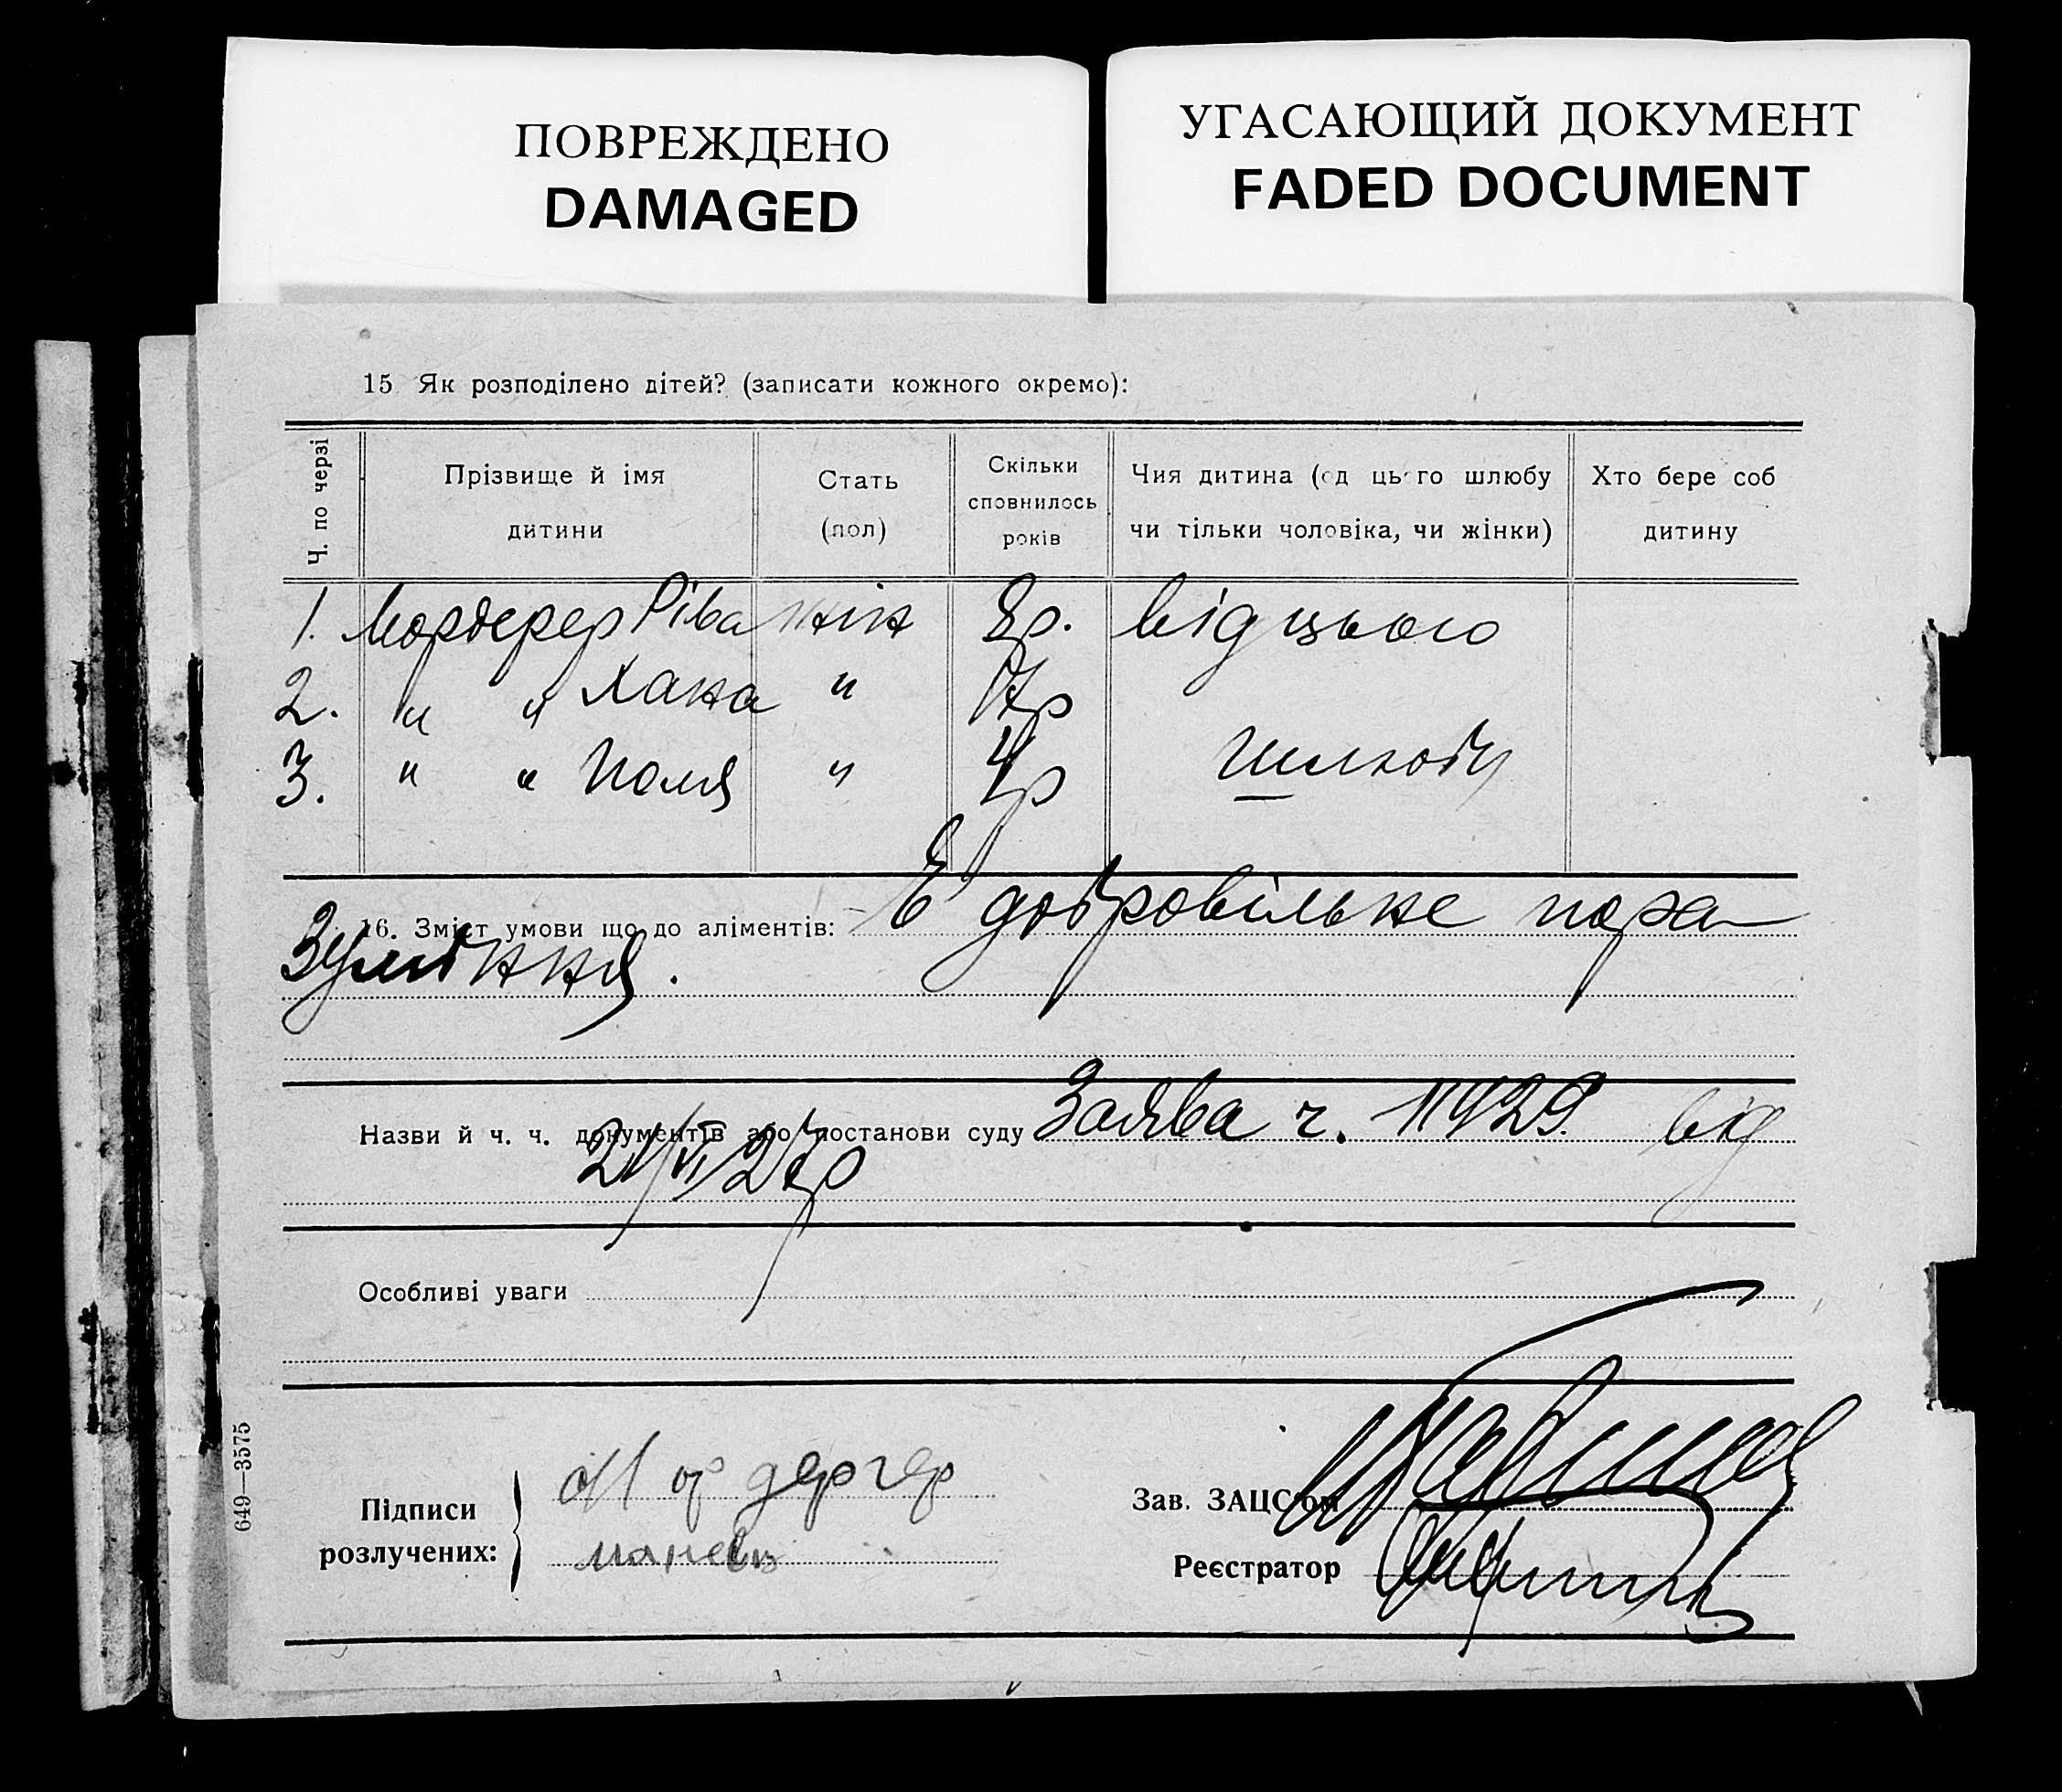 ПОВРЕЖДЕНО
DAMAGED
УГАСАЮЩИЙ ДОКУМЕНТ
FADED DOCUMENT
15 Як розподілено дітей? (записати кожного окремо):
Ч. по черзі
Прізвище й імя
дитини
Стать
(пол)
Скільки
сповнилось
років
Чия дитина (од цього шлюбу
чи тільки чоловіка, чи жінки)
Хто бере соб
дитину
1. Мордерер Ріва жін 8р. від цього
2. " " Хана " 7р
3. " " Поля " 4р шлюбу
16. Зміст умови що до аліментів: Є добровільне пора
зуміння.
Назви й ч. ч. документів або постанови суду Заява ч. 11929 від
21/VI 27р
Особливі уваги
649—3575
Підписи
розлучених:
Мордерер
Зав. ЗАЦС'ом
Реєстратор